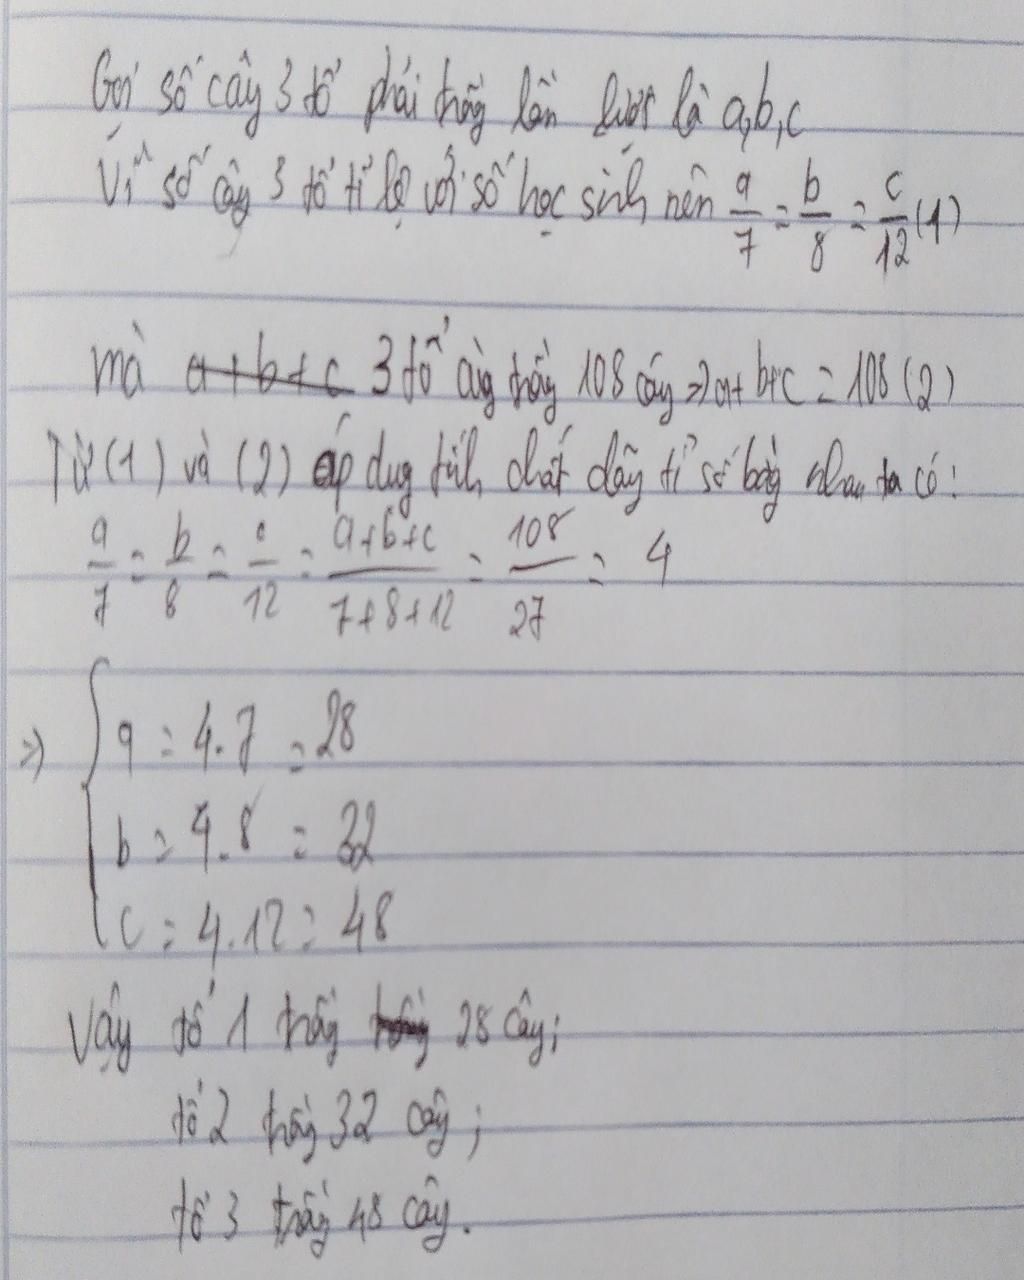 Gọi số cây 3 tổ phải trồng lần lượt là a,b,c
Vì số cây 3 tổ tỉ lệ với số học sinh nên a/7 = b/8 = c/12 (1)
mà a+b+c 3 tổ cùng trồng 108 cây => a+b+c = 108 (2)
Từ (1) và (2) áp dụng tính chất dãy tỉ số bằng nhau ta có:
a/7 = b/8 = c/12 = (a+b+c)/(7+8+12) = 108/27 = 4
=> { a = 4.7 = 28
b = 4.8 = 32
c = 4.12 = 48
Vậy tổ 1 trồng 28 cây;
tổ 2 trồng 32 cây;
tổ 3 trồng 48 cây.